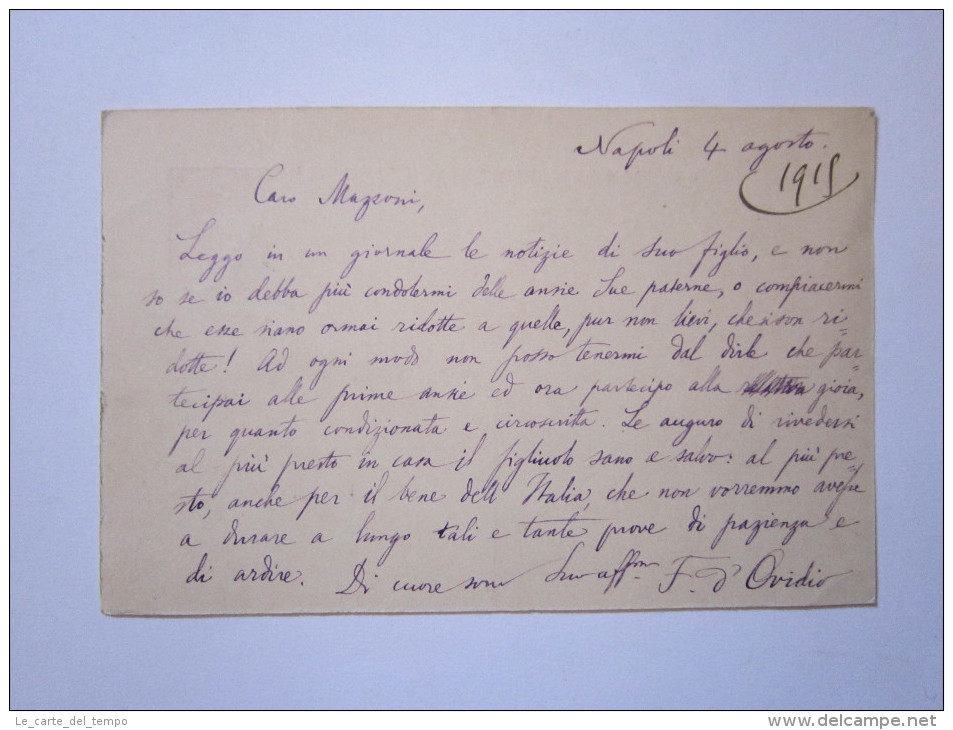 Napoli 4 agosto.
1915
Caro Mazzoni,
Leggo in un giornale le notizie di suo figlio, e non
so se io debba più condolermi delle ansie Sue paterne, o compiacermi
che esse siano ormai ridotte a quelle, pur non lievi, che son ri-
dotte! Ad ogni modo non posso tenermi dal dirle che par-
tecipai alle prime ansie ed ora partecipo alla gioia,
per quanto condizionata e circoscritta. Le auguro di rivedersi
al più presto in casa il figliuolo sano e salvo: al più pre-
sto, anche per il bene dell'Italia, che non vorremmo avesse
a durare a lungo tali e tante prove di pazienza e
di ardire. Di cuore sono Suo aff.mo F. d'Ovidio
Le_carte_del_tempo
www.delcampe.net